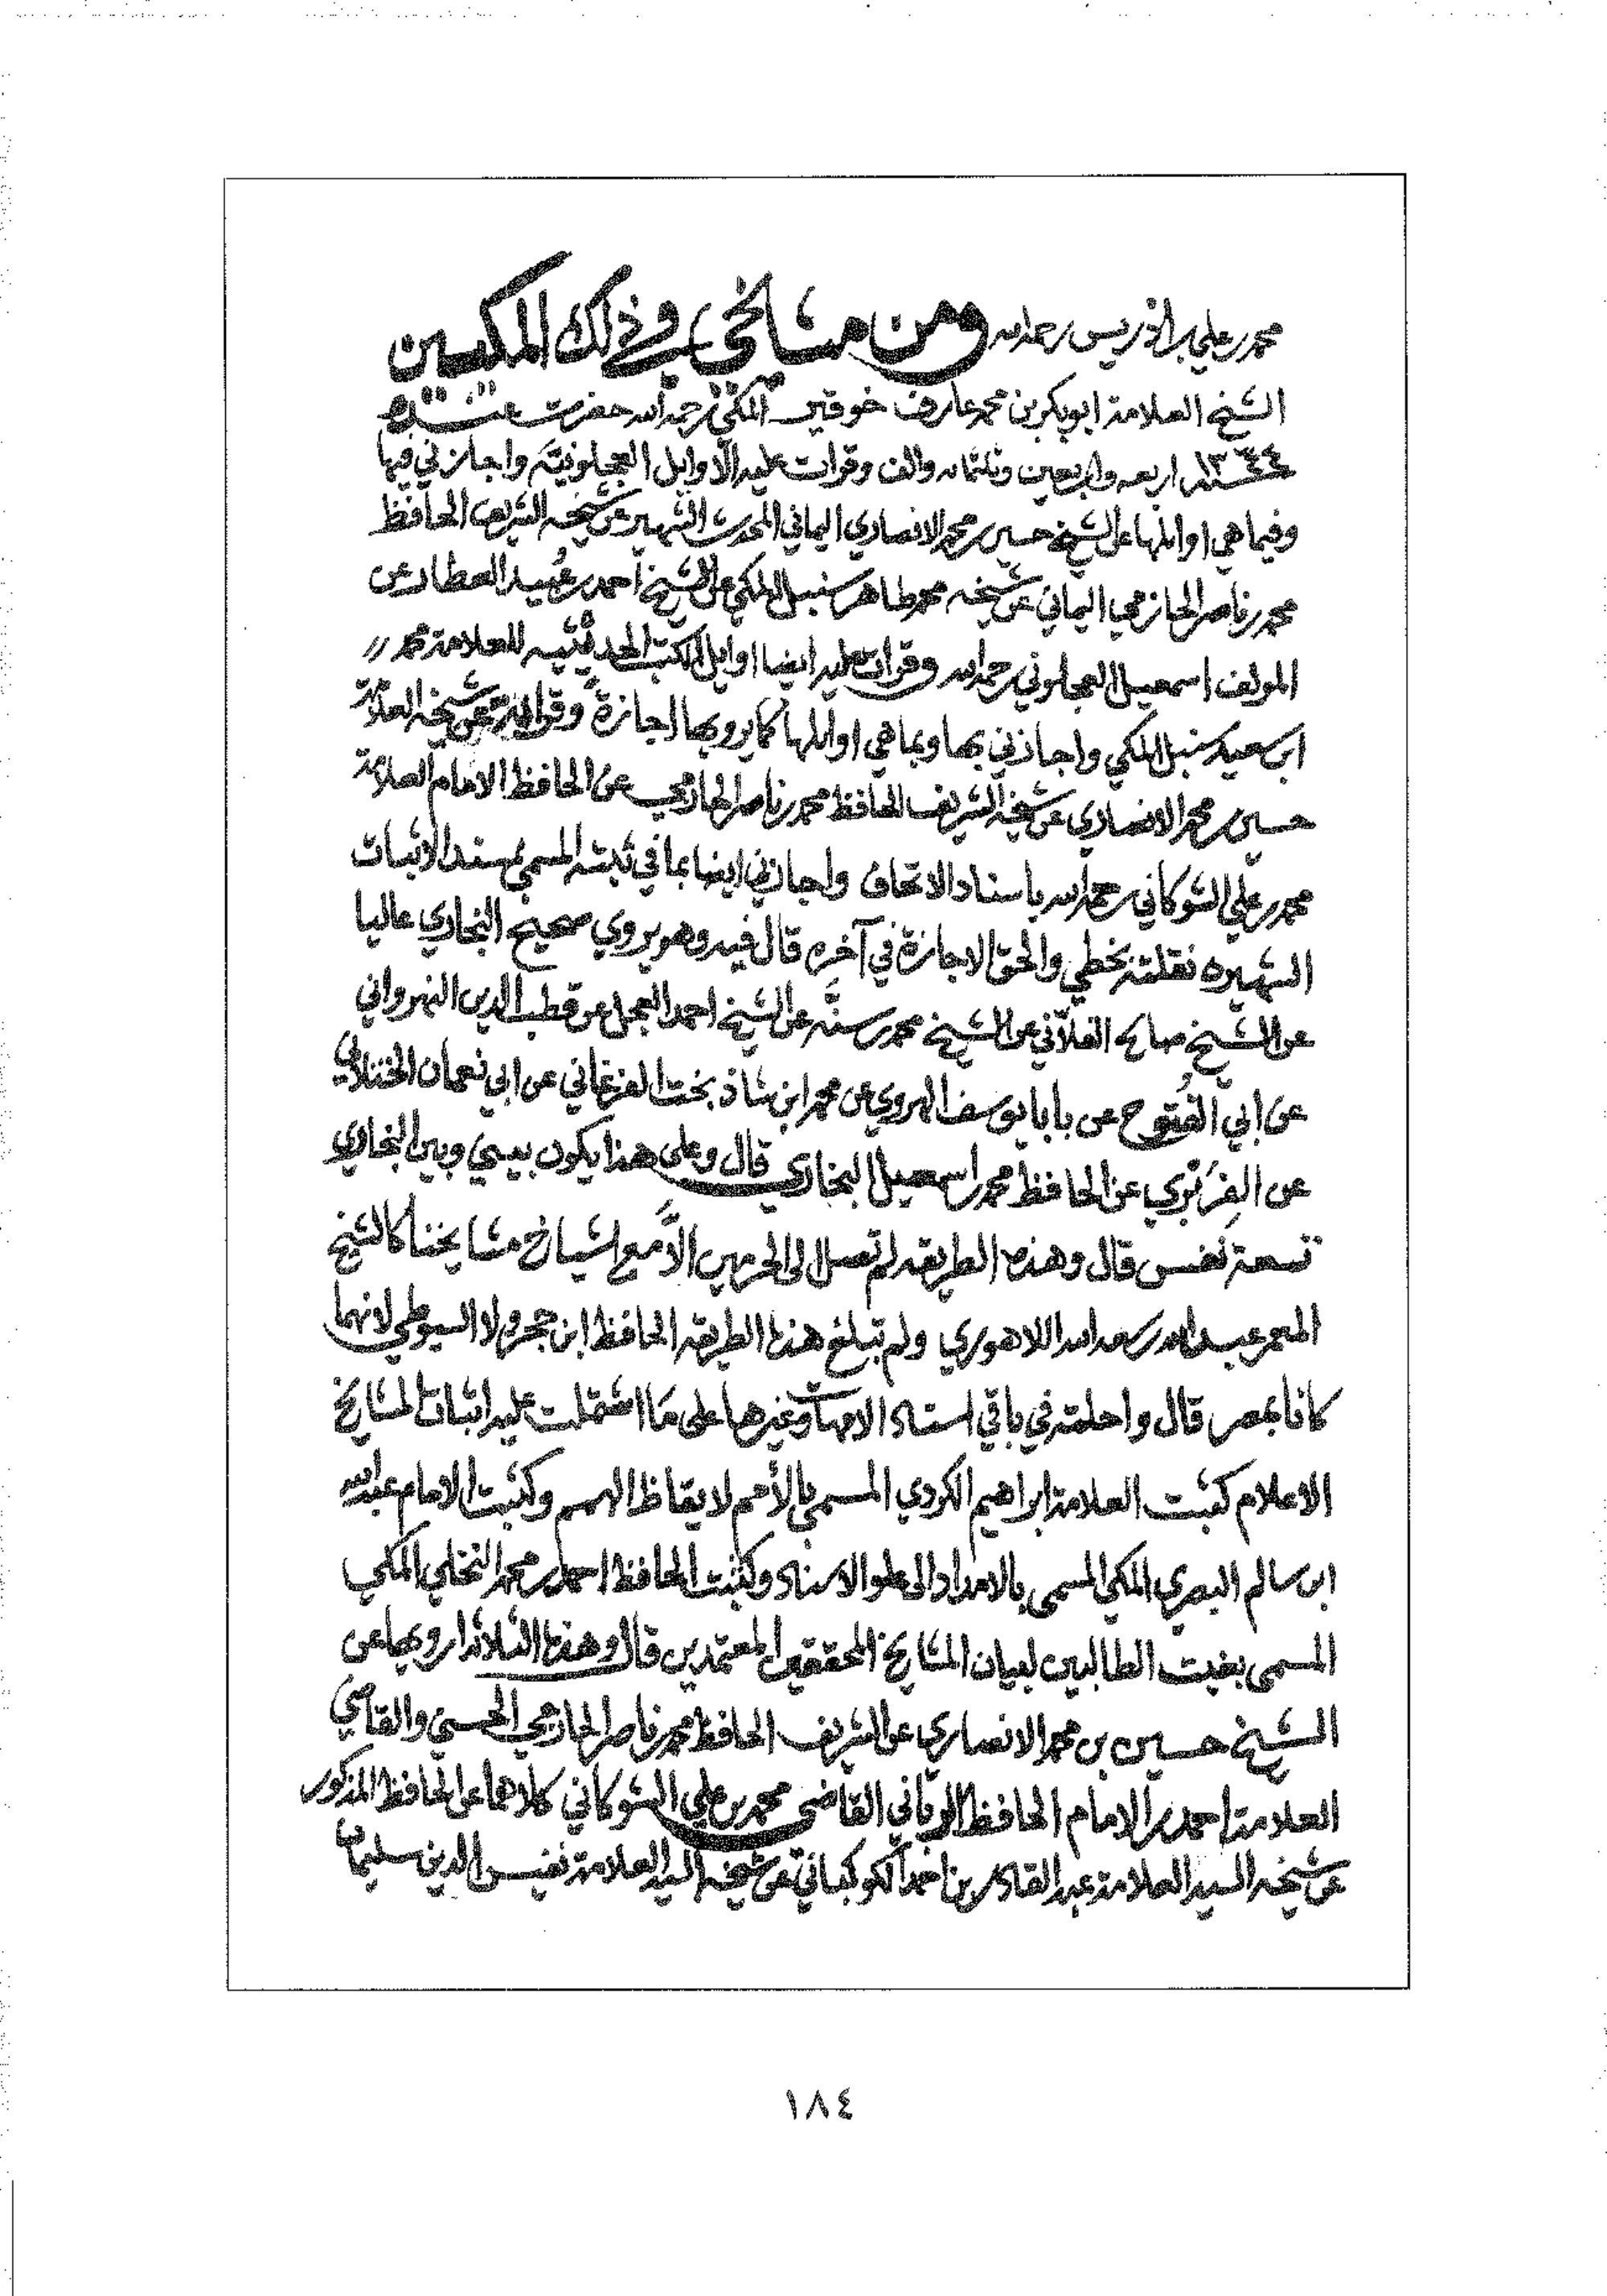 محمد بن علي بن ادريس رحمه الله ومن مشائخي في ذلك المكيين
الشيخ العلامة ابو بكر بن محمد عارف خوقير المكي رحمه الله حضرت عنده
سنة ١٣٤٤ اربعه واربعين وثلثمائه والف وقرات عليه الاوايل العجلونية واجازني فيها
وفيما هي اوائلها عن الشيخ حسين بن محمد الانصاري اليماني المحدث الشهير عن شيخه الشريف الحافظ
محمد بن ناصر الحازمي اليماني عن شيخه محمد طاهر سنبل المكي عن الشيخ احمد بن عُبيد العطار عن
المولف اسمعيل العجلوني رحمه الله وقرات عليه ايضا اوايل الكتب الحديثيه للعلامة محمد
ابن سعيد سنبل المكي واجازني بها وبما هي اوائلها كما يرويها اجازة وقراءة عن شيخه العلامة
حسين بن محمد الانصاري عن شيخه الشريف الحافظ محمد بن ناصر الحازمي عن الحافظ الامام العلامة
محمد بن علي الشوكاني رحمه الله باسناد الاتحاف واجازني ايضا بما في ثبته المسمى بمسند الاثبات
الشهيره نقلته بخطي والحق الاجازة في آخره قال فيه وهو يروي صحيح البخاري عاليا
عن الشيخ صالح الفلاّني عن الشيخ محمد بن سنَّه عن الشيخ احمد العجل عن قطب الدين النهرواني
عن ابي الفُتوح عن بابا يوسف الهروي عن محمد ابن شاذ بخت الفرغاني عن ابي نعمان الختلاني
عن الفِرَبْري عن الحافظ محمد اسمعيل البخاري قال وعلى هذا يكون بيني وبين البخاري
تسعة نفس قال وهذه الطريقه لم تصل الى الحرمين الاَّ مع اشياخ مشايخنا كالشيخ
المعمر عبد الله بن سعد الله اللاهوري ولم تبلغ هذه الطريقه الحافظ ابن حجر ولا السيوطي لانهما
كانا بمصر قال واحلته في باقي اسناد الامهات وغيرها على ما اشتملت عليه اثبات المشايخ
الاعلام كثبت العلامة ابراهيم الكردي المسمى بالأمم لايقاظ الهمم وكثبت الامام عبد الله
ابن سالم البصري المكي المسمى بالامداد الى علو الاسناد وكثبت الحافظ احمد بن محمد النخلي المكي
المسمى بغيت الطالبين لبيان المشايخ المحققين المعتمدين قال وهذه الثلاثه ارويها عن
الشيخ حسين بن محمد الانصاري عن الشريف الحافظ محمد بن ناصر الحازمي الحسني والقاضي
العلامة احمد بن الامام الحافظ الرباني القاضي محمد بن علي الشوكاني كلاهما عن الحافظ المذكور
عن شيخه السيد العلامة عبد القادر بن احمد الكوكباني عن شيخه السيد العلامة نفيس الدين سليمان
١٨٤